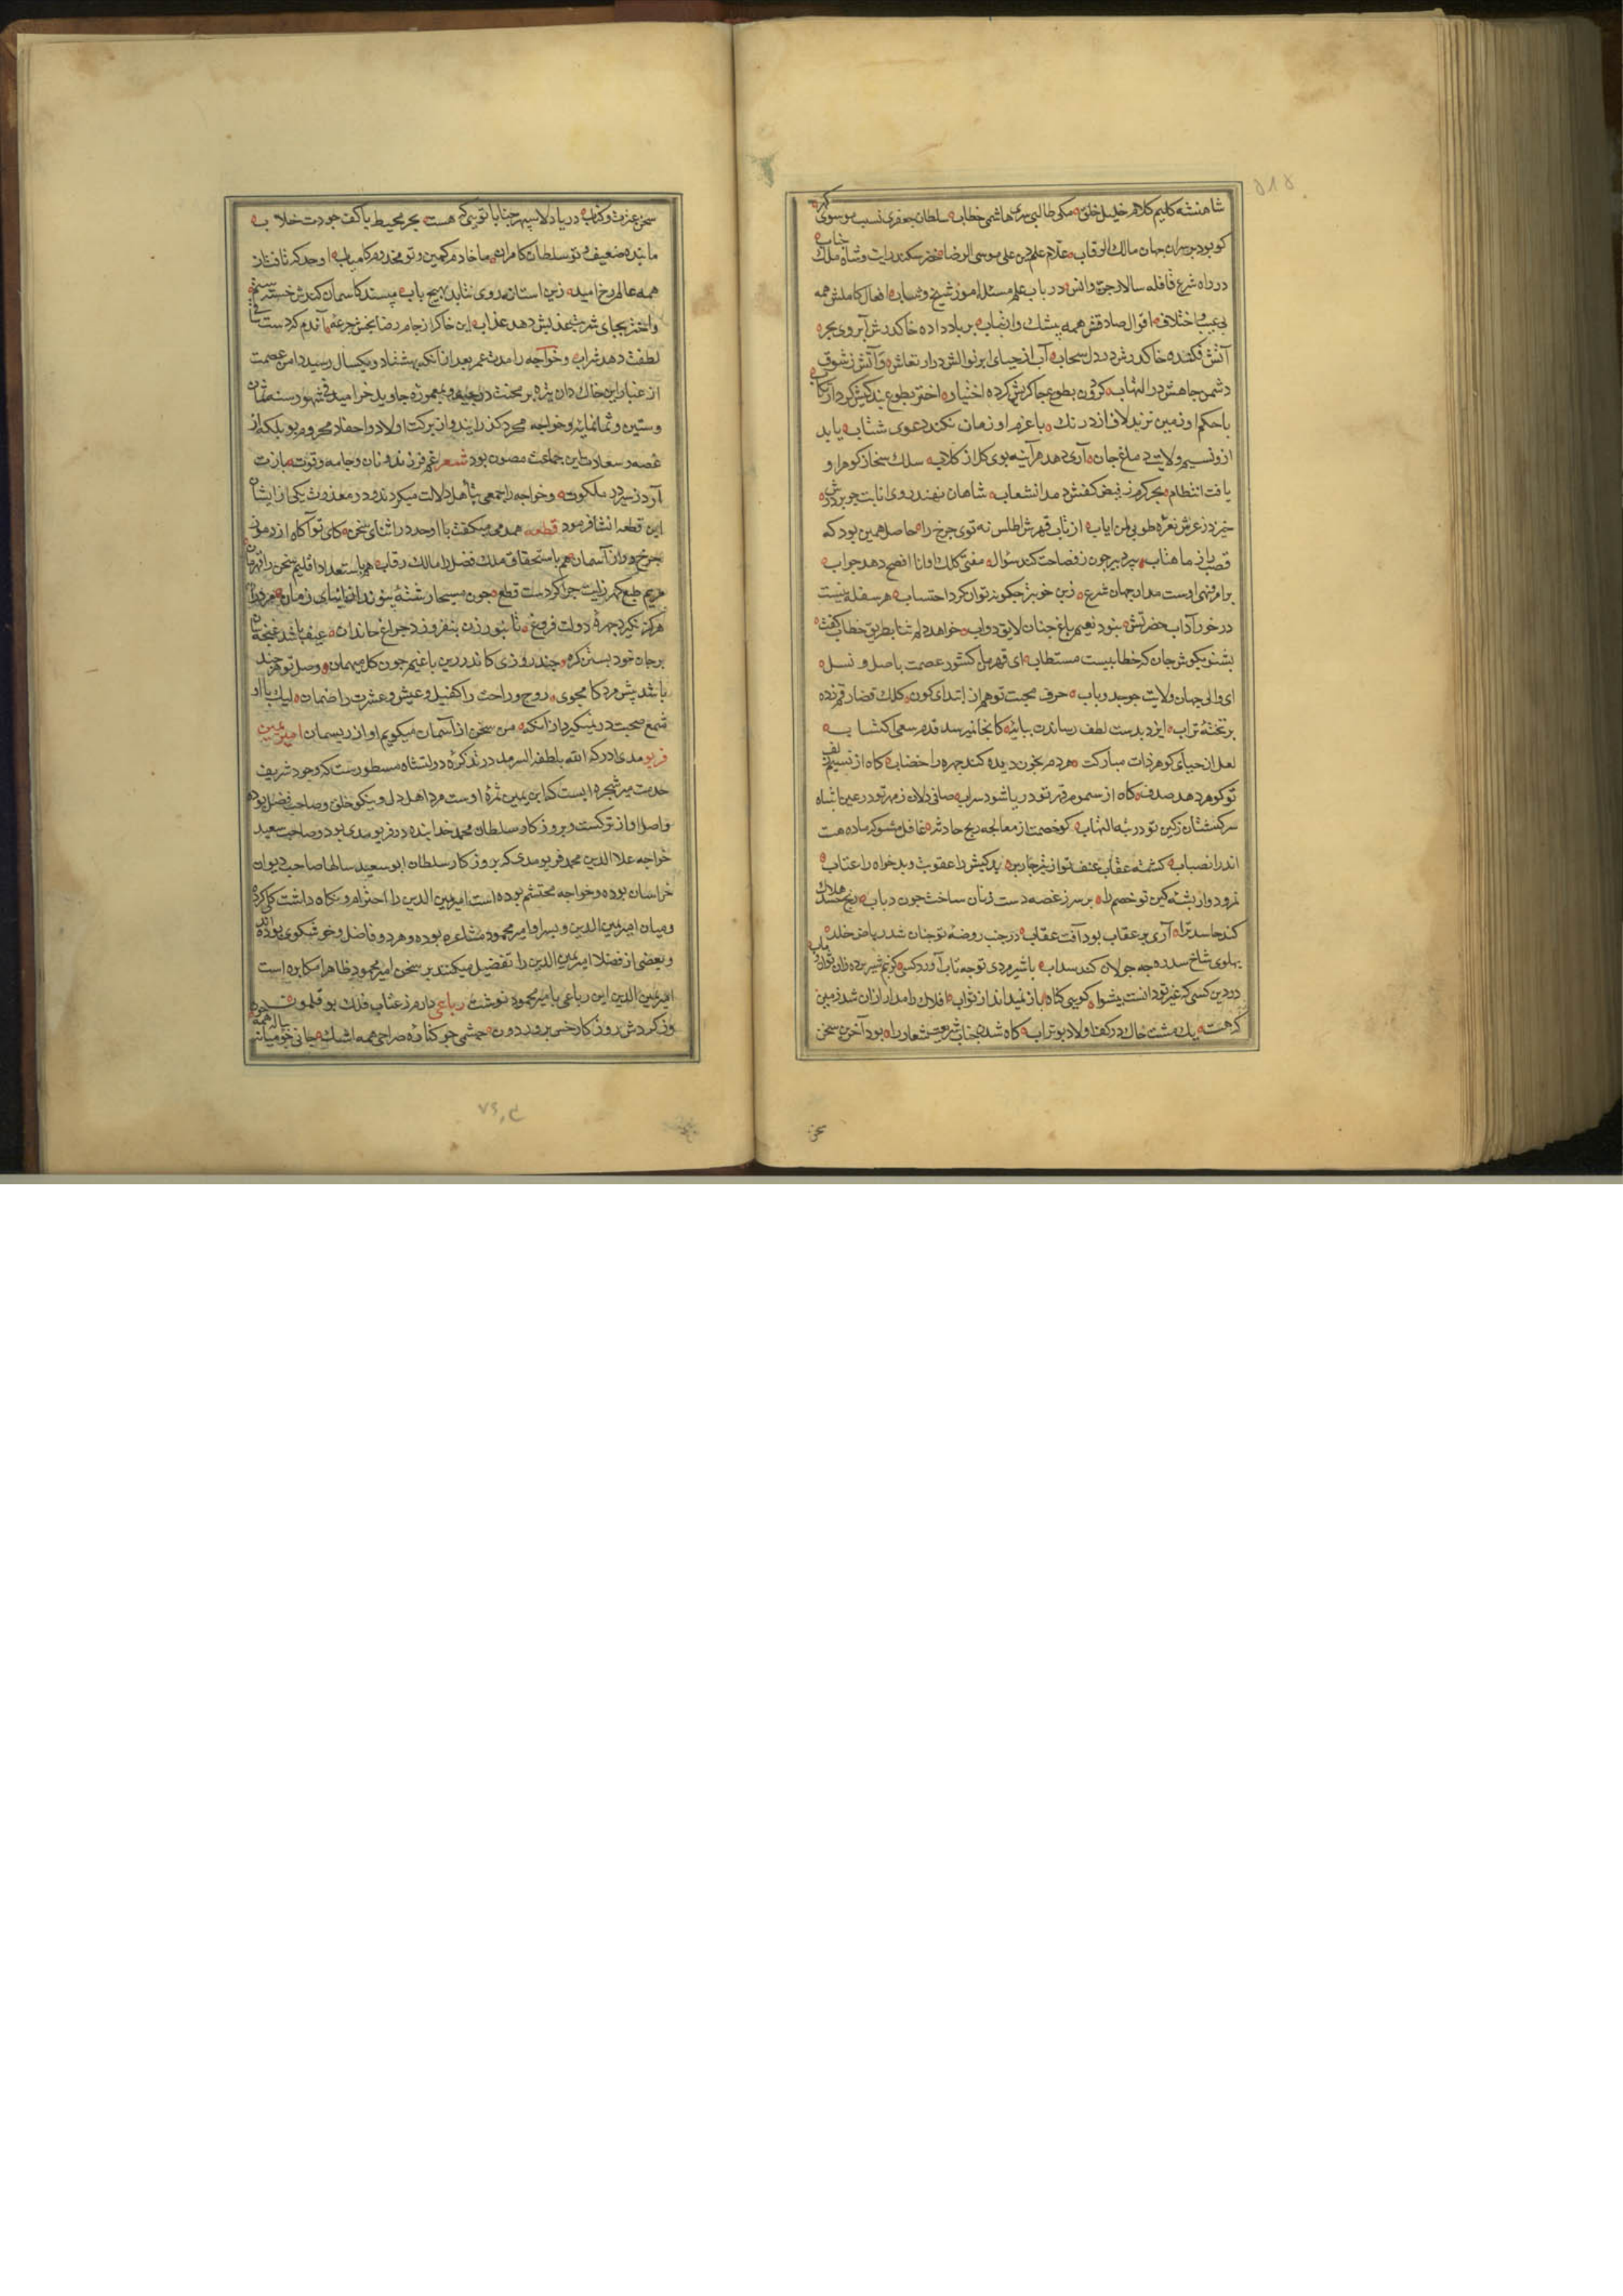 ۵۱۵
شاهنشه کلیم کلام خلیل خلق مکی طالبی سری هاشمی خطاب سلطان جعفری نسب موسوی گهر
کو بود بر سران جهان مالک الرقاب علام علم دین علی موسی الرضا خضر سکندر رایت و شاه ملک جناب
در راه شرع قافله سالار جن و انس در باب علم مسئله آموز شیخ و شاب افعال کاملش همه
بی عیب و اختلاف اقوال صادقش همه بیشک و ارتیاب بر باد داده خاک درش آبروی بحر
آتش فکنده خاک درش در دل سحاب آب از حیای ابر نوالش در ارتعاش و آتش ز شوق
دشمن جاهش در التهاب گردون بطوع چاکریش کرده اختیار اختر بطوع بندگیش کرده ارتکاب
با حکم او زمین نزند لاف از درنک با عزم او زمان نکند دعوی شتاب یابد
از و نسیم ولایت دماغ جان آری دهد هر آینه بوی کل از کلاب سلک سخا ز کوهر او
یافت انتظام بحر کرم ز فیض کفش دمد انشعاب شاهان نهند روی انابت چو بر درش
خیزد ز عرش نعره طوبی لمن اناب از تاب قهرش اطلس نه توی چرخ را حاصل همین بود که
قصب را ز ماهتاب پیر دبیر چون ز فصاحت کند سؤال مفتی کلک او انا افصح دهد جواب
بر امر و نهی اوست مدار جهان شرع زین خوبتر چکونه توان کرد احتساب هر سفله نیست
در خور آداب حضرتش نبود نعیم باغ جنان لایق دواب خواهد دلم ثنا بطریق خطاب گفت
بشنو بکوش جان که خطابیست مستطاب ای قهرمان کشور عصمت باصل و نسل
ای والی جهان ولایت بجد و باب حرف محبت تو هم از ابتدای کون کلک قضا رقم زده
بر تختهٔ تراب ایزد بدست لطف رساندت بپایهٔ کانجا نمیرسد قدم سعی اکتساب
لعل از حیای کوهر ذات مبارکت هر دم بخون دیده کند چهره را خضاب کاه از نسیم لطف
تو کوهر دهد صدف کاه از سموم قهر تو دریا شود سراب صافی دلان ز مهر تو در عین انتباه
سرکشتکان ز کین تو در تیه التهاب کو خصمت از معالجه ریح حادثه غافل مشو که ماده هست
اندر انصباب کشته عقاب عنف تو از بهر جابرین بدکیش را عقوبت و بدخواه را عتاب
نمرود وار پشه کین تو خصم را بر سر ز غصه دست زنان ساخت چون ذباب رنج حسد هلاک
کند حاسد ترا آری پر عقاب بود آفت عقاب در جنب روضهٔ تو جنان شد ریاض خلد
پهلوی شاخ سدره چه جولان کند سداب با شیر مردی تو چه تاب آورد کسی
در دین کسی که غیر تو دانست پیشوا کویی کناه باز نمیداند از ثواب افلاک را مدار از آن شد زمین
که هست یک مشت خاک در کف اولاد بوتراب کاه شدی جناب شریعت شعار را بود آخرین سخن
سخن
سخن عزت و کتاب دریا دلا سپهر جنابا تویی که هست بحر محیط با کف جودت خلاب
ما بنده ضعیف و تو سلطان کامران ما خادم کمین و تو مخدوم کامیاب اوحد که تافتست از
همه عالم رخ امید زین آستانه روی نتابد بهیچ باب مپسند کاسمان کندش خسته ستم
و اختر بجای شربت عذبش دهد عذاب این خاک را ز جام رضا بخش جرعه آندم که دست ساقی
لطفت دهد شراب و خواجه را مدت عمر بعد از آنکه بهشتاد و یکسال رسید دامن عصمت
از غبار این خاک دان تیره پر محنت درچید و بمعموره جاوید خرامید فی شهور سنه ثمان
وستین و ثمانمایه و خواجه مجرد گذرانید و از برکت اولاد و احفاد محروم بو بلکه از
غصه و سعادت این جماعت مصون بود شعر غم فرزند و نان و جامه و قوت بازت
آرد ز سیر در ملکوت و خواجه را جمعی بتأهل دلالت میکردند و در معذرت یکی از ایشان
این قطعه انشا فرمود قطعه همدمی میکفت با اوحد در اثنای سخن کای تو آکاه از رموز
چرخ و راز آسمان هم باستحقاق ملک فضل را مالک رقاب هم باستعداد اقلیم سخن را قهرمان
مریم طبع کهرزایت چرا کردست قطع چون مسیحا رشتهٔ پیوند از انسای زمان مرد را
هرکز نکیرد چهرهٔ دولت فروغ تا بنور زن بنفروزد چراغ خاندان عیف باشد غنچه سان
بر جان خود بستن کره چند روزی کاندرین باغیم چون کل میهمان وصل تو هر چند
باشد پیش مرد کامجوی روح و راحت را کفیل و عیش و عشرت را ضمان لیک با او
شمع صحبت در نمیکیرد از آنکه من سخن از آسمان میکویم او از ریسمان امیر یمین
فریومدی ادرکه الله بلطفه السرمد در تذکره دولتشاه مسطورست که وجود شریف
حدیت میر شجره ایست که ابن یمین ثمرهٔ اوست مرد اهل دل و نیکو خلق و صاحب فضل بوده
و اصل او از ترکست و بروزکار سلطان محمد خدابنده در فریومد می بود و صاحب سعید
خواجه علاالدین محمد فریومدی که بروزکار سلطان ابوسعید سالها صاحب دیوان
خراسان بوده و خواجه محتشم بوده است امیر یمین الدین را احترام و نکاه داشت کلی کرد
و میان امیر یمین الدین و پسر او امیر محمود مشاعره بوده و هر دو فاضل و خوشکوی بوده اند
و بعضی از فضلا امیر یمین الدین را تفضیل میکنند بر سخن امیر محمود ظاهرا مکابره است
امیر یمین الدین این رباعی بامیر محمود نوشت رباعی دارم ز عتاب فلک بوقلمون
وز کردش روزکار خس پرور دون چشمی چو کناره صراحی همه اشک جانی چو میانه پیاله همه خون